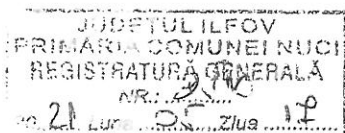 JUDEŢUL ILFOV
PRIMĂRIA COMUNEI NUCI
REGISTRATURĂ GENERALĂ
NR.:
21 Luna 05 Ziua 17